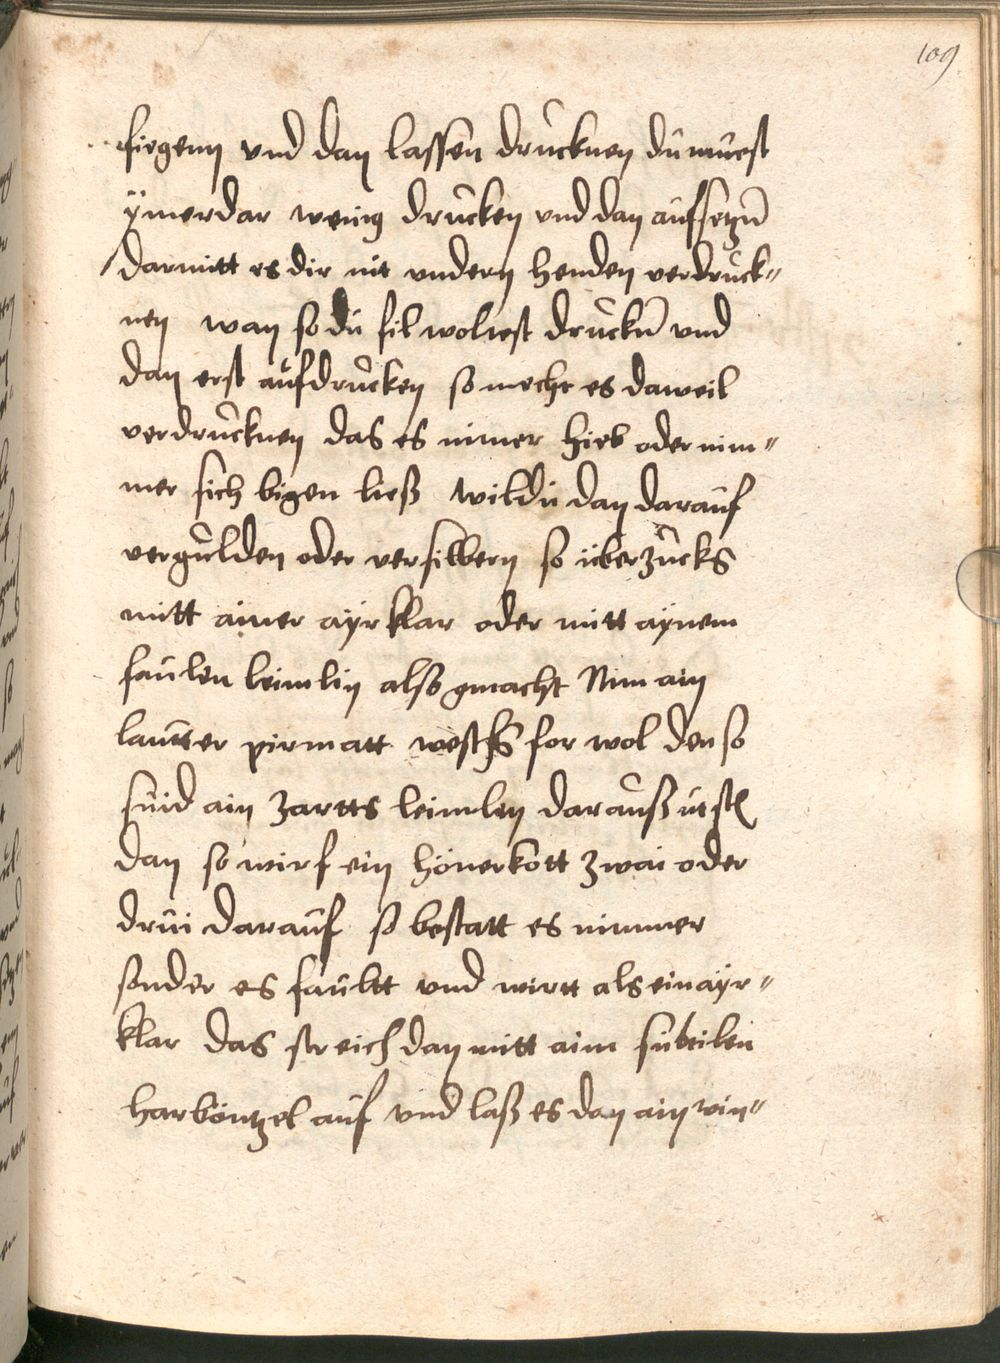 109
fiegenn vnd dan lassen drucknen du muest
ÿmerdar wenig drucken vnd dan aufsetzn̄
darmitt es dir nit vndern henden verdruck〃
nen wan so du fil woltest druckn̄ vnd
dan erst aufdrucken so mecht es daweil
verdrucknen das es nimer hieb oder nim〃
mer sich bigen ließ wildu dan darauf
vergulden oder versilbern so überzucks
mitt ainer aÿrklar oder mitt aÿnem
faulen leimlin also gmacht Nim ain
lautter pirmatt weschs for wol den so
suid ain zartts leimlen darauß
dan so wirf ein hönerkott zwai oder
drui darauf so bestatt es nimmer
sonder es faultt vnd wirtt als ein aÿr〃
klar das streich dan mitt aim subtilen
harböntzel auf vnd laß es dan ain win〃